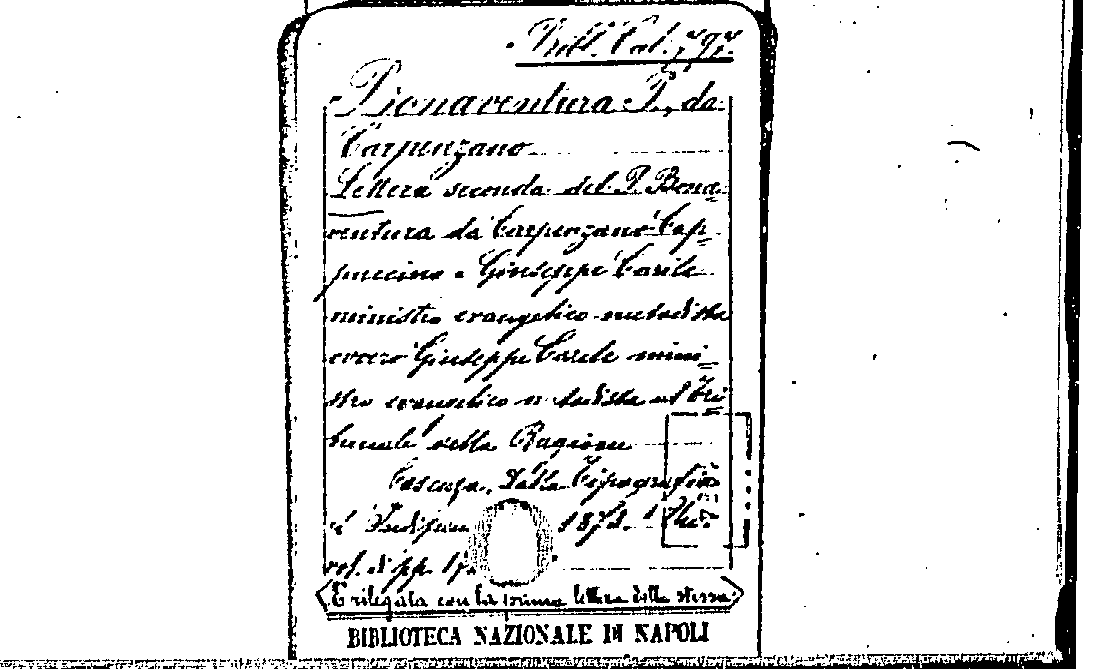 Bibl. Cal. 797.
Bonaventura P., da
Carpenzano
Lettera seconda del P. Bona=
ventura da Carpenzano Cap=
puccino a Giuseppe Carile
ministro evangelico metodista
ovvero Giuseppe Carile mini=
stro evangelico metodista al Tri=
bunale della Ragione
Cosenza, Dalla Tipografia
1874.
vol. di pp.
È rilegata con la prima lettera dello stesso
BIBLIOTECA NAZIONALE DI NAPOLI